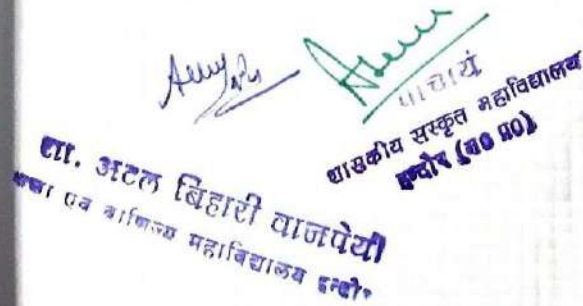 प्राचार्य
शासकीय संस्कृत महाविद्यालय
इन्दोर (म० प्र०)
शा. अटल बिहारी वाजपेयी
कला एवं वाणिज्य महाविद्यालय इन्दौर